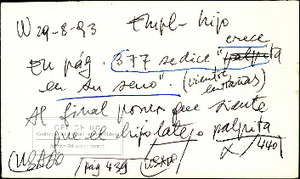 W 29-8-93 Empl- hijo
crece
En pág. 377 se dice "palpita
en su seno". (vientre
entrañas)
Al final poner que siente
que el hijo late o palpita
USADO pág 439 USADO 440